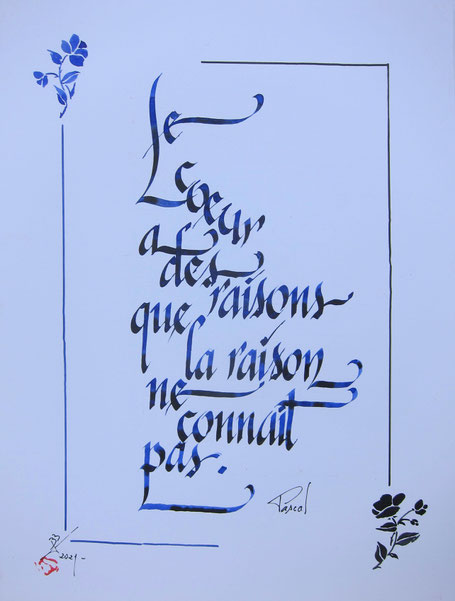 Le
cœur
a des
raisons
que
la raison
ne
connait
pas.
Pascal
2021-